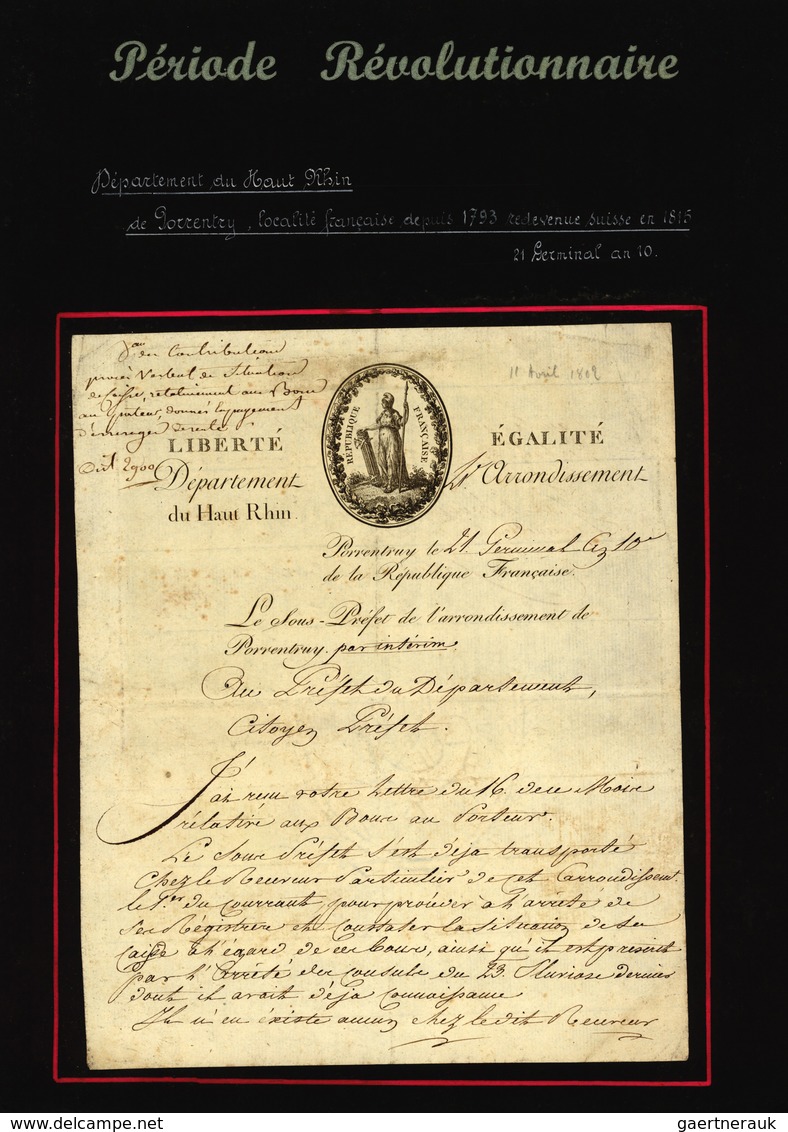 Période Révolutionnaire
Département du Haut Rhin
de Porrentry, localité française depuis 1793 redevenue suisse en 1815
21 Germinal an 10.
11 Avril 1802
des Contributions
procès Verbal de Situation
de Caisse, relativement aux Bons
au Porteur, donnés en payement
2900
LIBERTÉ
RÉPUBLIQUE FRANÇAISE
ÉGALITÉ
Département
Arrondissement
du Haut Rhin.
Porrentruy le 21 Germinal an 10e
de la République Française.
Le Sous-Préfet de l'arrondissement de
Porrentruy. par intérim.
Au Préfet du Département,
Citoyen Préfet.
J'ai reçu votre Lettre du 16. de ce Mois
rélative aux Bons au Porteur.
Le Sous Préfet s'est déja transporté
Chez le Receveur Particulier de cet Arrondissemt.
le 1er du Courrant, pour proceder à l'arrété de
Ses Régistres et constater la situation de sa
caisse à l'égard de ces bons, ainsi qu'il est prescrit
par l'Arrêté des consuls du 23. Pluviose dernier
dont il avait déja connaissance
Il n'en existe aucun chez le dit Receveur
gaertnerauk